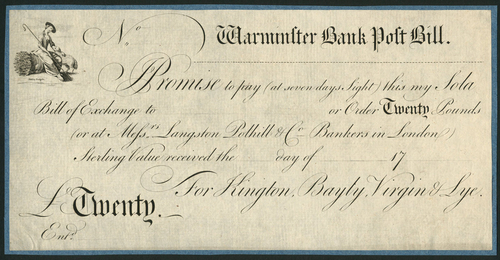 No Warminster Bank Post Bill.
I Promise to pay (at seven days Sight) this my Sola
Bill of Exchange to or Order Twenty Pounds
(or at Mess.rs Langston Polhill & Co. Bankers in London)
Sterling Value received the day of 17
£ Twenty. For Kington, Bayly, Virgin & Lye.
Entd.